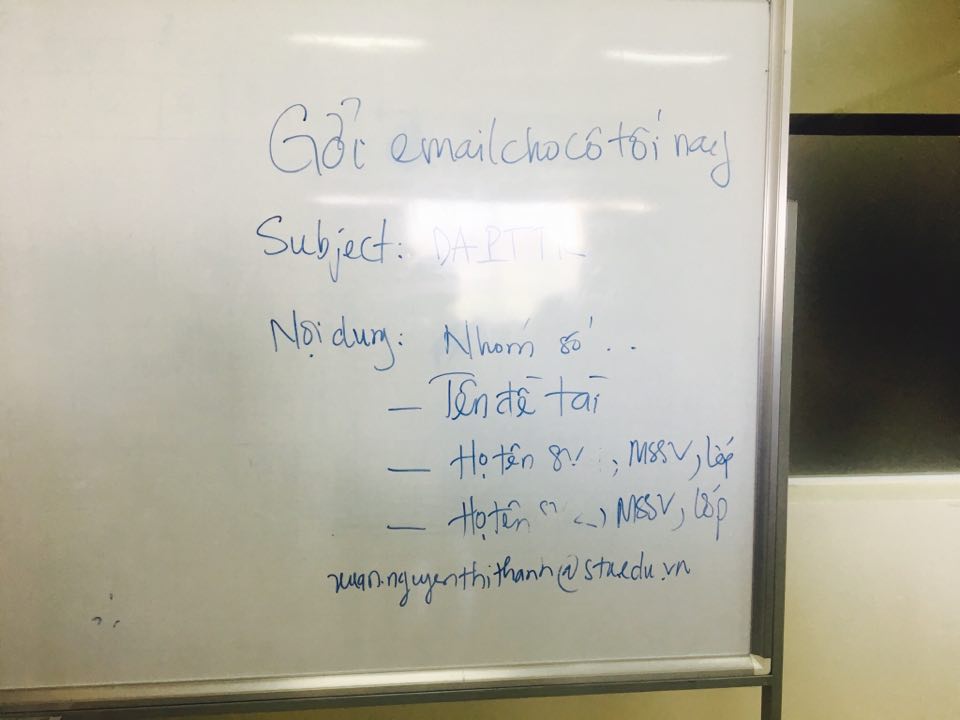 Gởi email cho cô tối nay
Subject: DA-PTTK
Nội dung: Nhóm số ..
— Tên đề tài
— Họ tên SV , MSSV, lớp
— Họ tên , MSSV, lớp
xuan.nguyenthithanh@stu.edu.vn